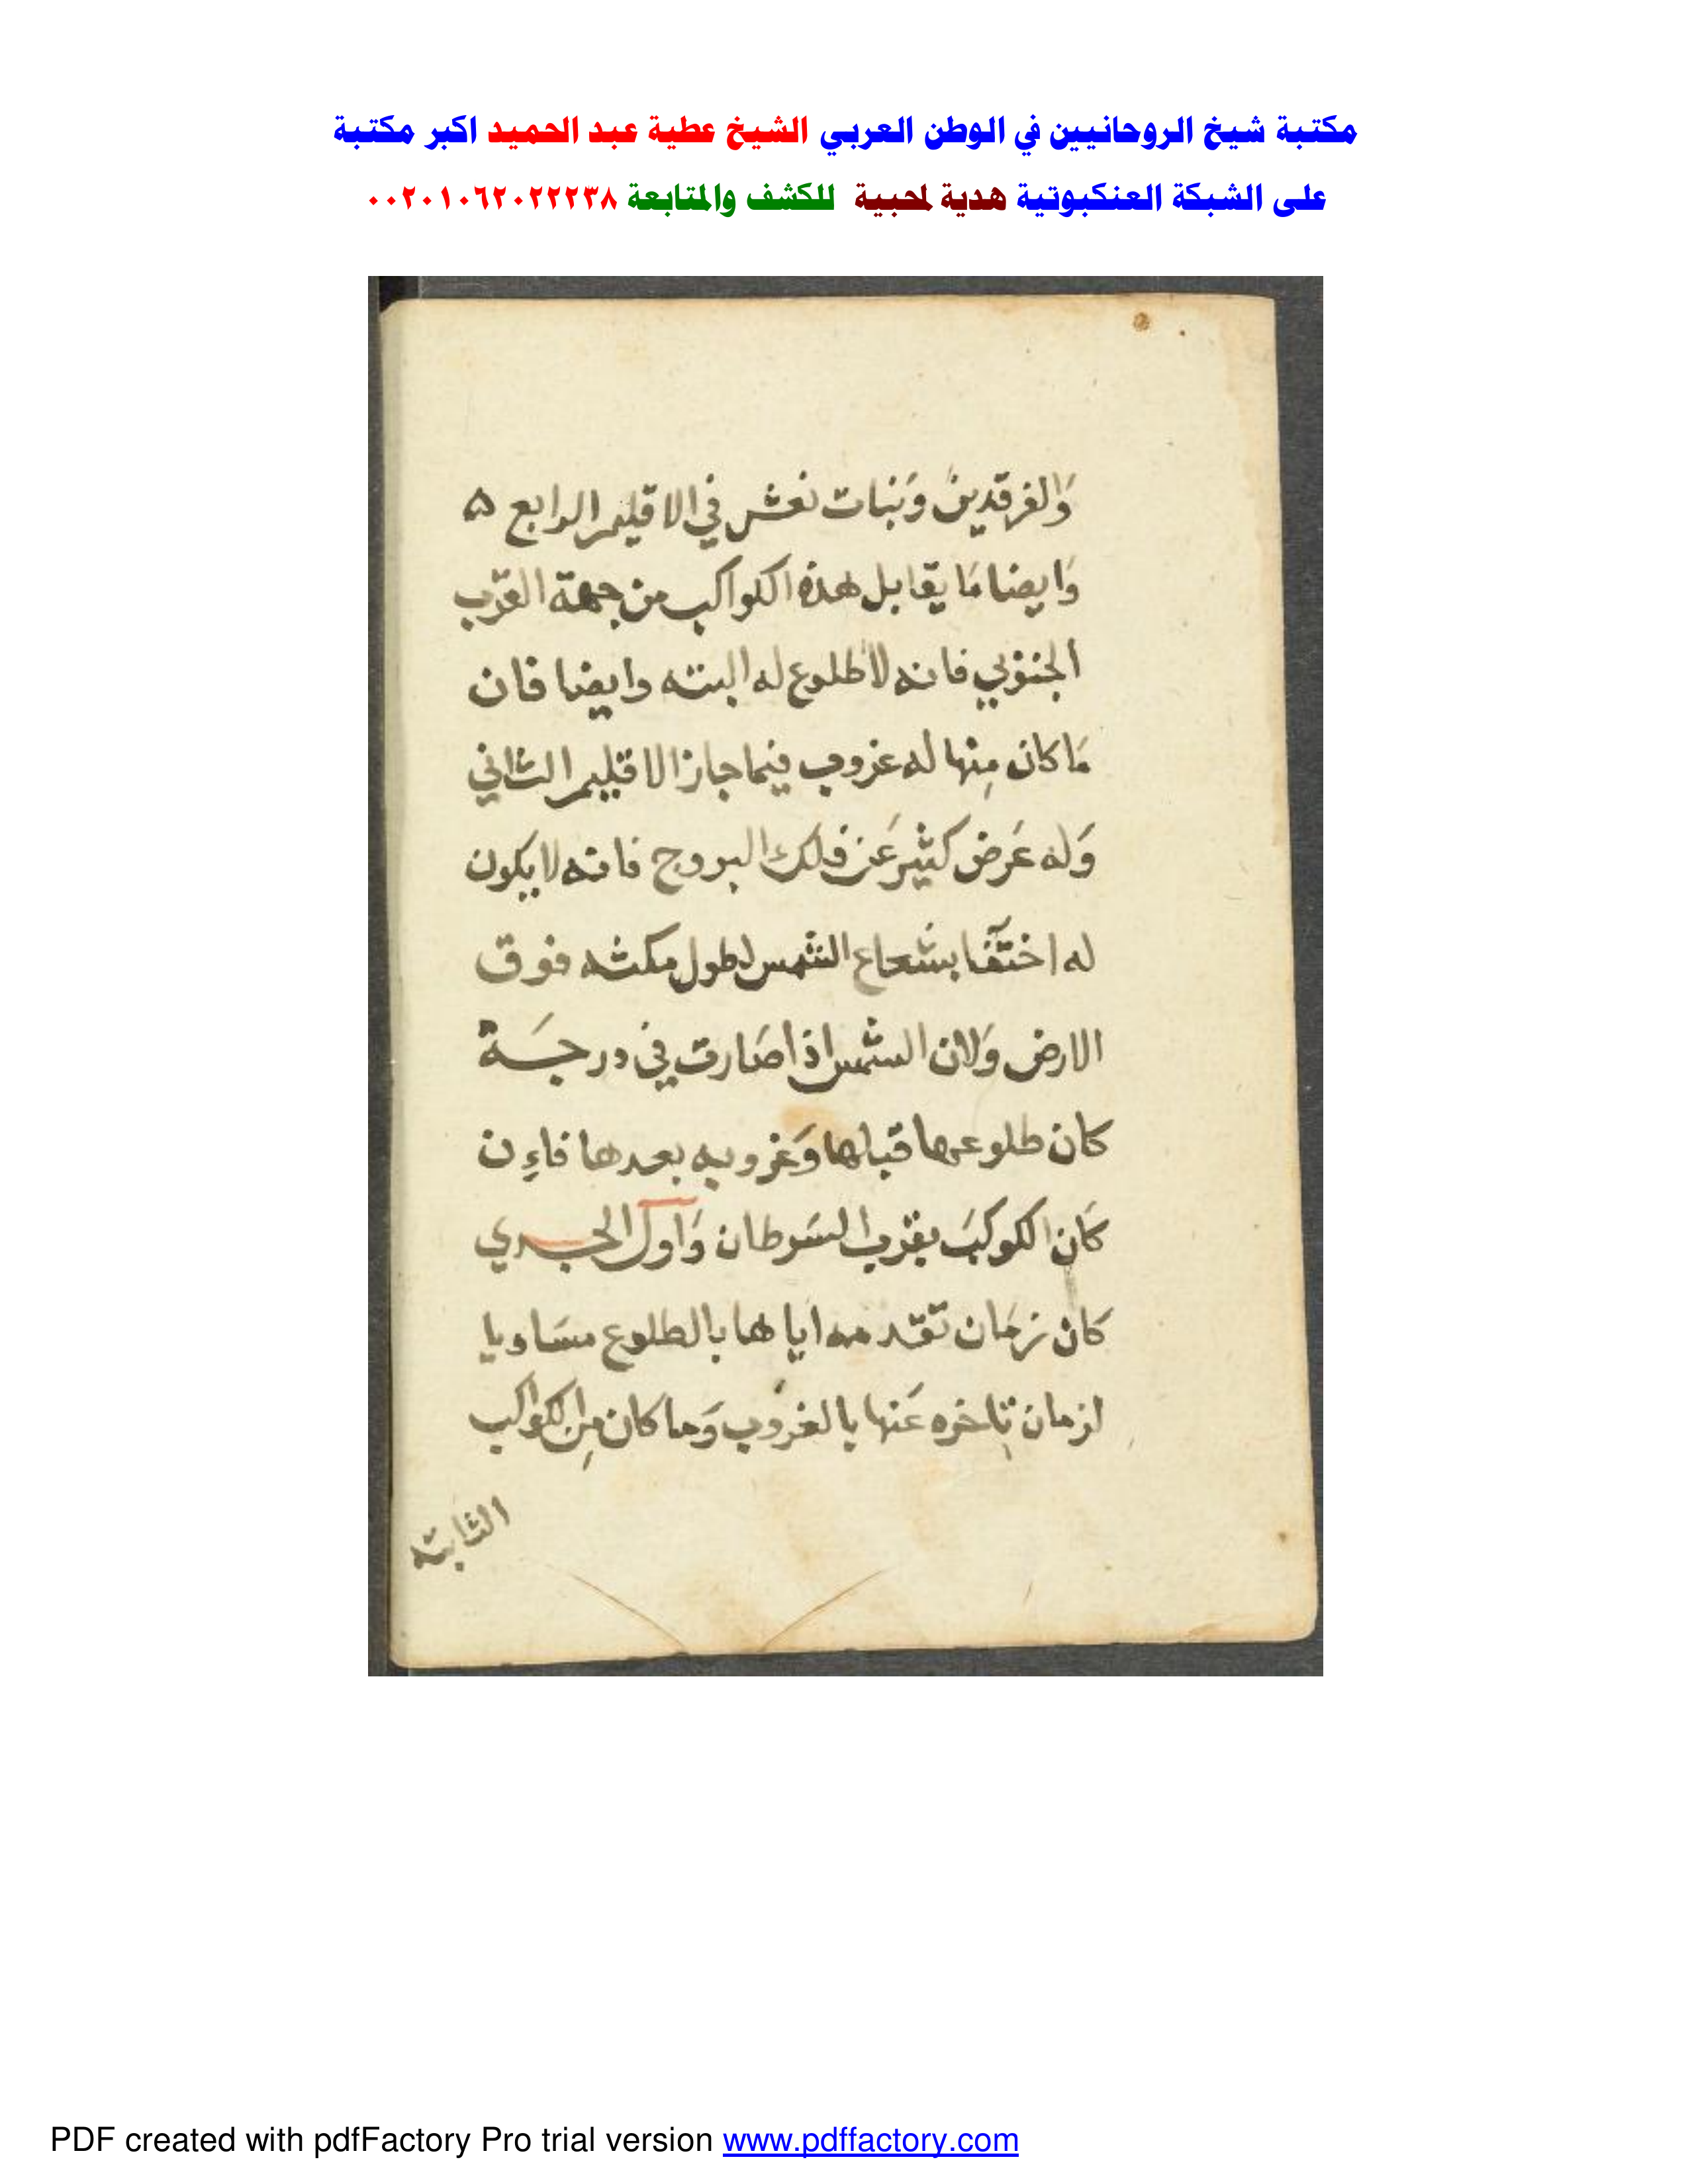 مكتبة شيخ الروحانيين في الوطن العربي الشيخ عطية عبد الحميد اكبر مكتبة
على الشبكة العنكبوتية هدية لمحبية للكشف والمتابعة ٠٠٢٠١٠٦٢٠٢٢٢٣٨
وَالفرقدين وَبَنات نعش في الاقليم الرابع ۵
وَايضا مَا يقابل هذه الكواكب من جهة القرب
الجنوبي فانه لا طلوع له البته وايضا فان
مَا كان مِنها له غروب فيما جاز الاقليم الثاني
وَله عَرض كثير عَن فلك البروج فانه لا يكون
له اختفآ بشعاع الشمس لطول مكثه فوق
الارض وَلان الشمس اذا صَارت في درجَة
كان طلوعها قبلها وَغروبه بعدها فاءِن
كَان الكوكبَ بقرب السَرطان وَاول الجدي
كان زمَان تقدمه اياها بالطلوع مسَاويا
لزمان تاخره عَنها بالغروب وَما كان مِن الكواكب
الثابته
PDF created with pdfFactory Pro trial version www.pdffactory.com